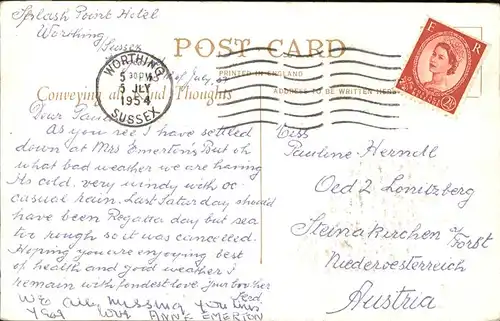 Splash Point Hotel
Worthing
Sussex
of July
POST CARD
PRINTED IN ENGLAND
ADDRESS TO BE WRITTEN HERE
Conveying and Thoughts
WORTHING
5 30 PM
5 JLY
1954
SUSSEX
E R
POSTAGE REVENUE
2½D
Dear
As you see I have settled
down at Mrs Emerton's. But oh
what bad weather we are having
Its cold, very windy with oc-
casual rain. Last Saturday should
have been Regatta day but sea
too rough so it was cancelled.
Hoping you are enjoying best
of health and good weather I
remain with fondest love Your brother
Ferd.
We all missing you this
year love ANNE EMERTON
Miss
Pauline Herndl
Oed 2 Lonitzberg
Steinakirchen a/Forst
Niederoesterreich
Austria